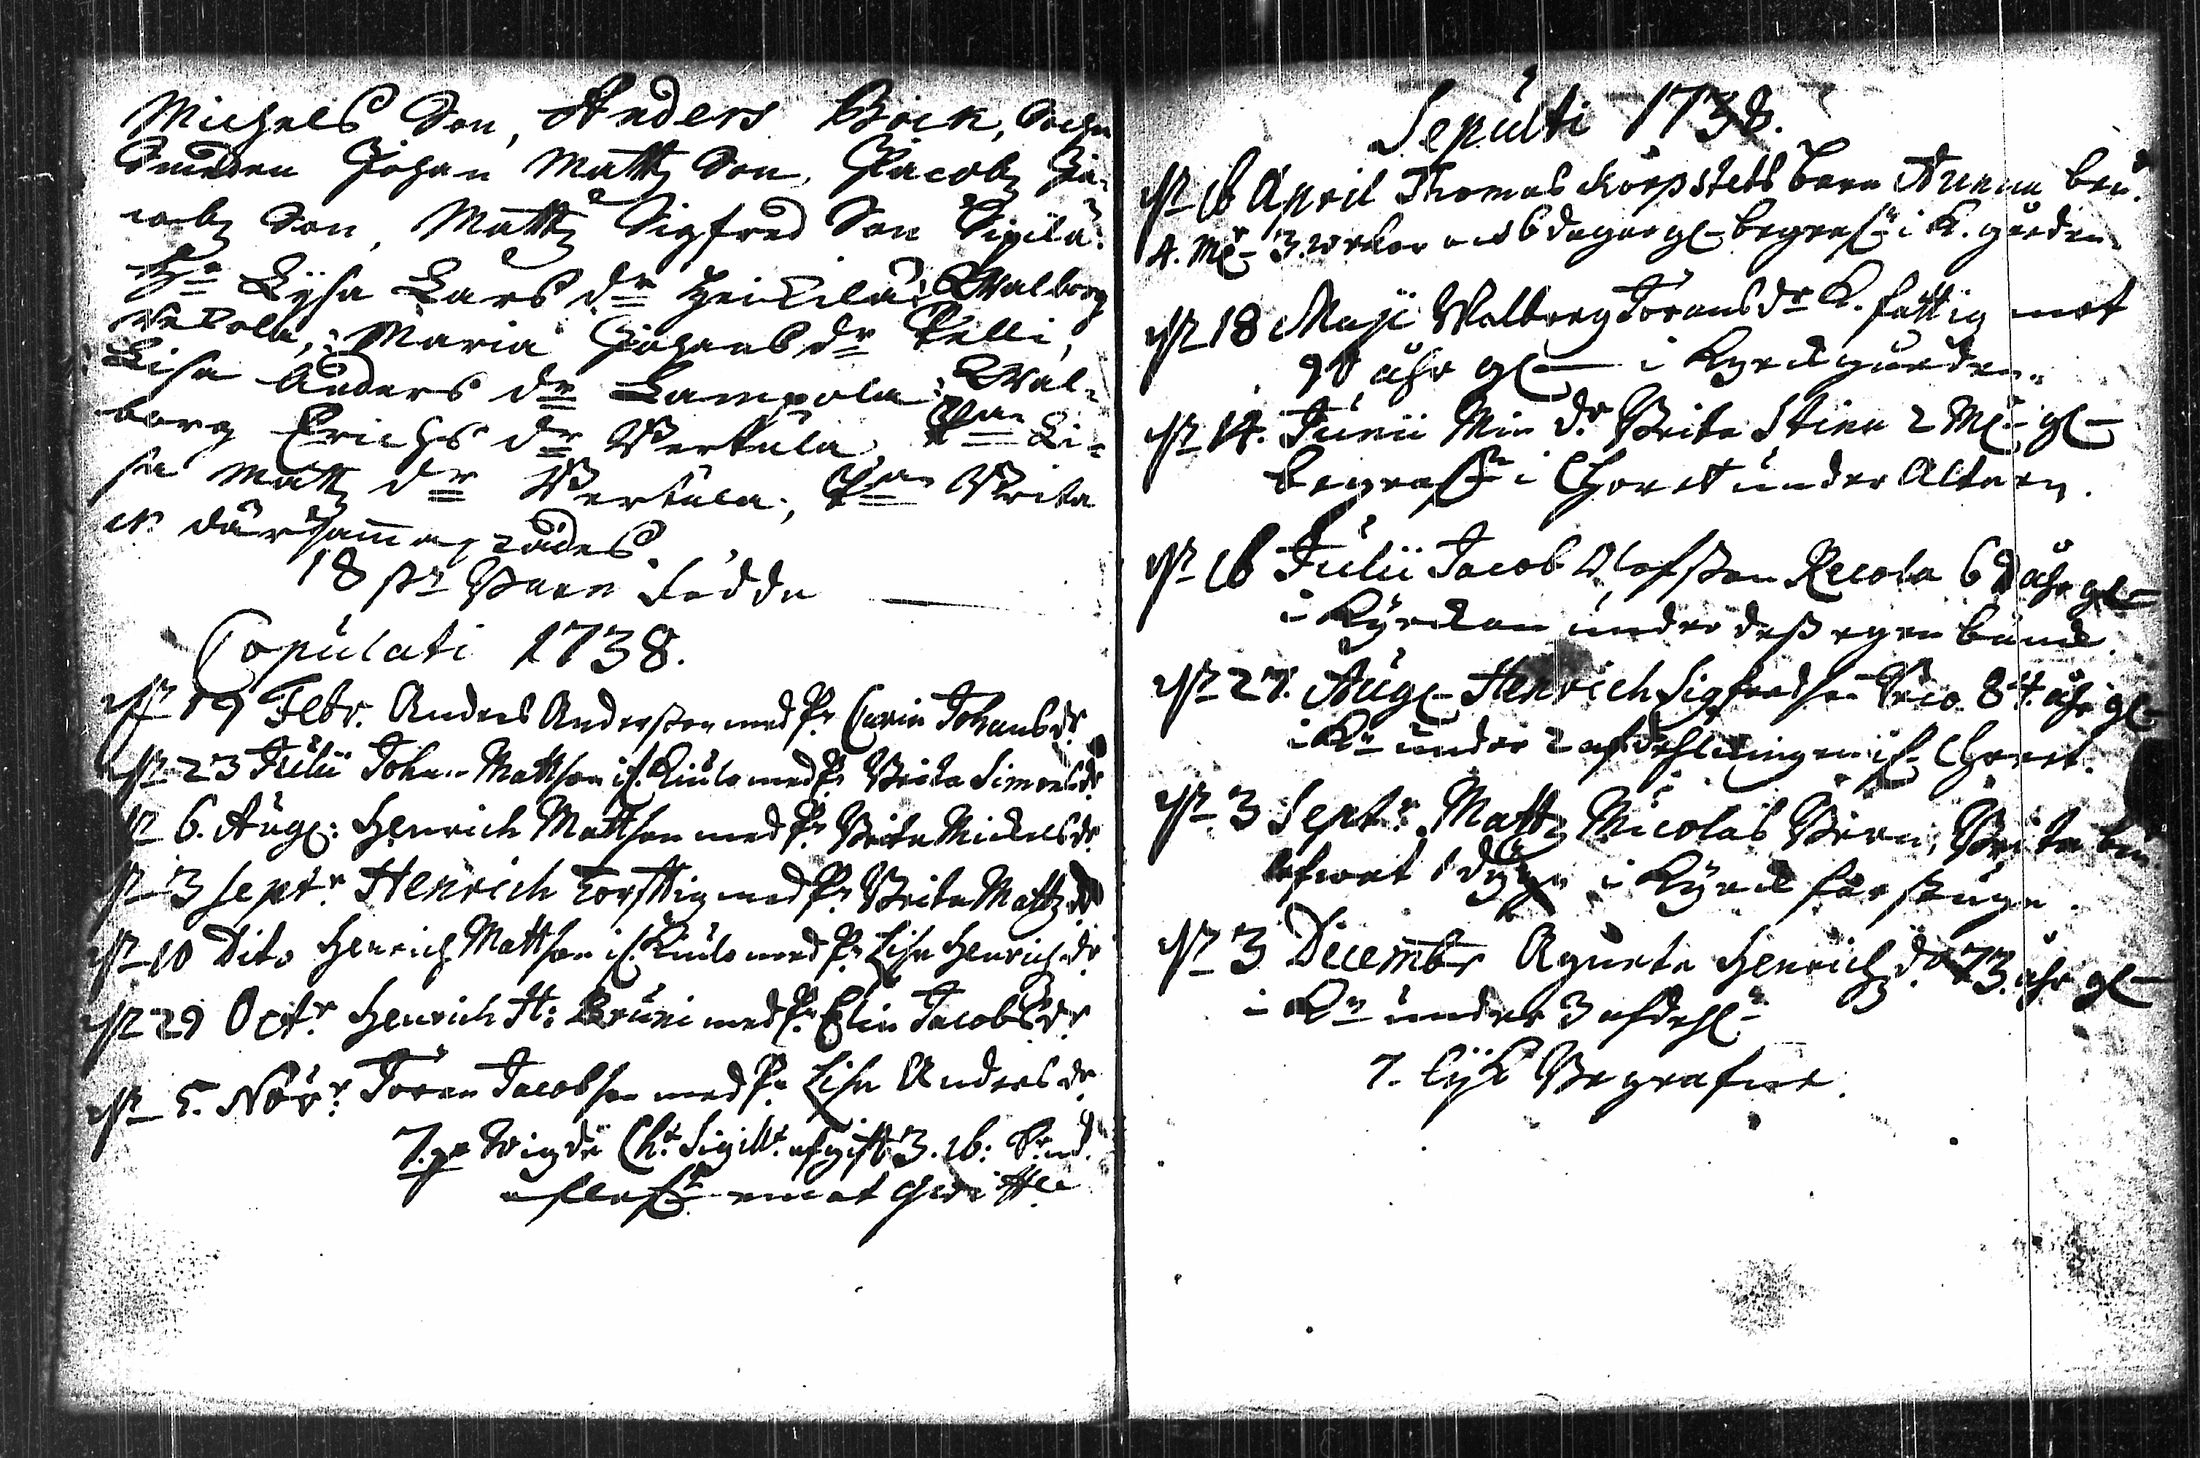 Michels Son, Anders Böck, Sochn
Smeden Johan Matts Son, Jacob Ja-
cobs Son, Matts Sigfred Son Sipilä.
Hu Lysa Lars dr Heickilä: Walborg
Wekola, Maria Johans dr Pelli,
Lisa Anders dr Lampola: Wal-
borg Erichs dr Wertula, Pan Li-
sa Matts dr Wertula, Pan Brita
därsammastädes.
18 st Barn födde
Copulati 1738.
19 Febr. Anders Andersson med P. Carin Johans dr
23 Julii Johan Mattson med P. Brita Simons dr
6. Aug: Henrich Mattson med P. Brita Michels dr
3 Septr Henrich med P. Brita Matts dr
10 Dito Henrich Mattson med P. Lisa Henrichs dr
29 Octr Henrich H: Bruni med P. Elin Jacobs dr
5. Novr Jöran Jacobson med P. Lisa Anders dr
7. pr Wigde Ch. Sigill. afgift 3. 16:
emot
Sepulti 1738.
16 April Thomas Körpstets barn Anna
4. M. 3. wekor 6 dagar gl begrafn i K. gården
18 Maji Walborg Jörans dr K. fattig
90 åhr gl i Kyrckgården.
14. Junii Min dr Brita Stina 2 M. gl
begrafn i Choret under Altaren.
16 Julii Jacob Olofsson Recola 6 åhr gl
i Kyrckan under dess egen bänck.
27. Aug Henrich Sigfredson 84. åhr gl
i K. under 2 afdehlningen Choret.
3 Septr Matts Nicolas Barn, Brita
i Kyrck förstugu.
3 Decembr Agneta Henrichs dr 73. åhr gl
i K. under 3 afdehl
7. Lijk Begrafne.